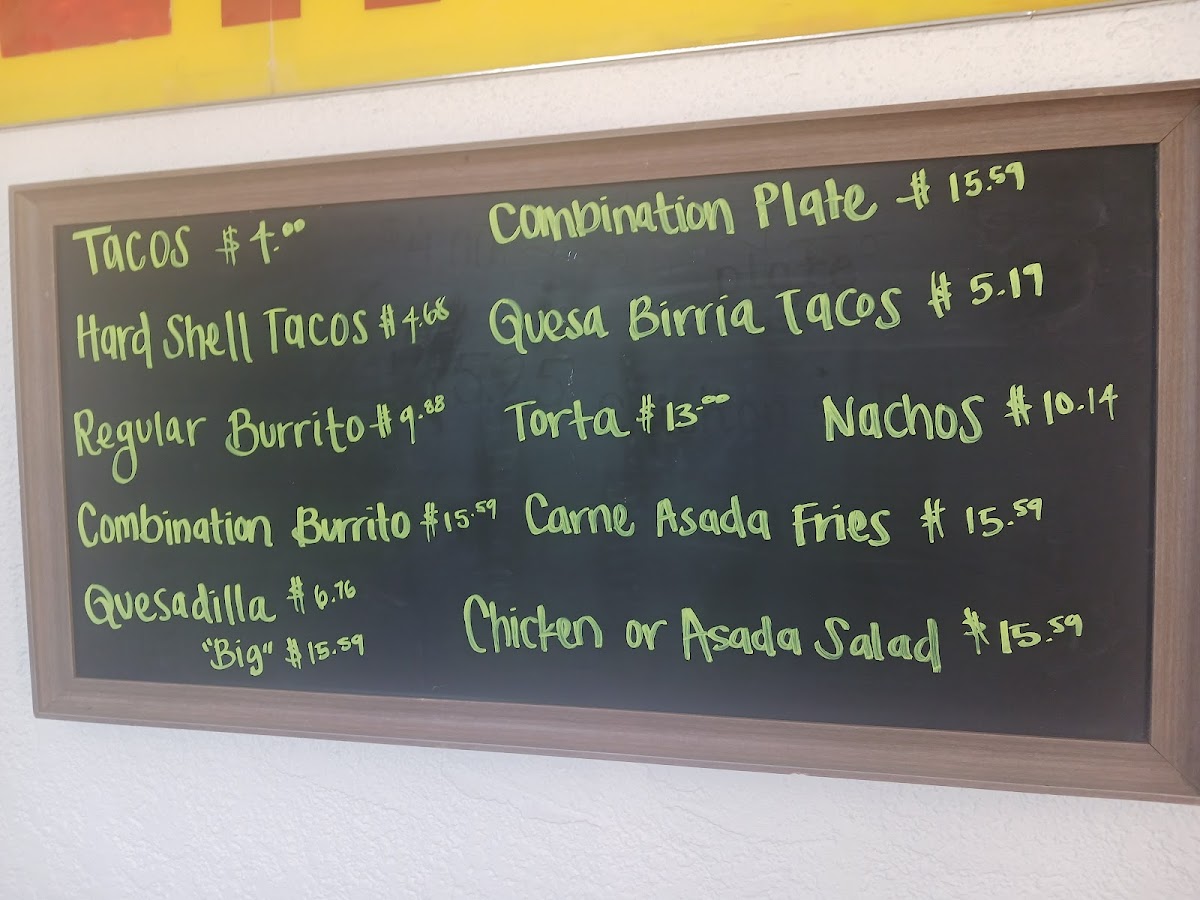 Tacos $4.00
Hard Shell Tacos $4.68
Regular Burrito $9.88
Combination Burrito $15.59
Quesadilla $6.76
"Big" $15.59
Combination Plate $15.59
Quesa Birria Tacos $5.19
Torta $13.00 Nachos $10.14
Carne Asada Fries $15.59
Chicken or Asada Salad $15.59